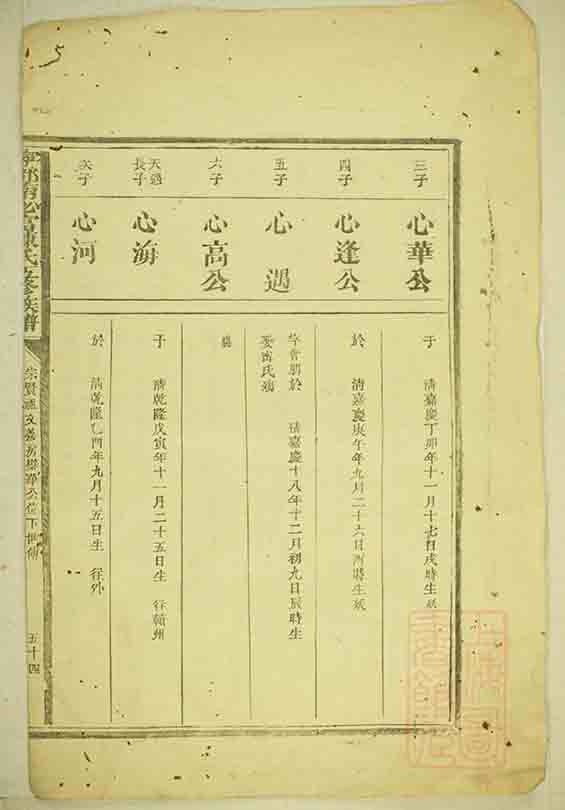 三子
心華公
于 清嘉慶丁卯年十一月十七日戌時生 歿
四子
心逢公
於 清嘉慶庚午年九月二十六日酉時生 歿
五子
心遇
字 於 清嘉慶十八年十二月初九日辰時生
娶 氏
六子
心高公
天遇長子
心海
于 清乾隆戊寅年十一月二十五日生 往贛州
次子
心河
於 清乾隆乙酉年九月十五日生 往外
氏 修族譜
五十四